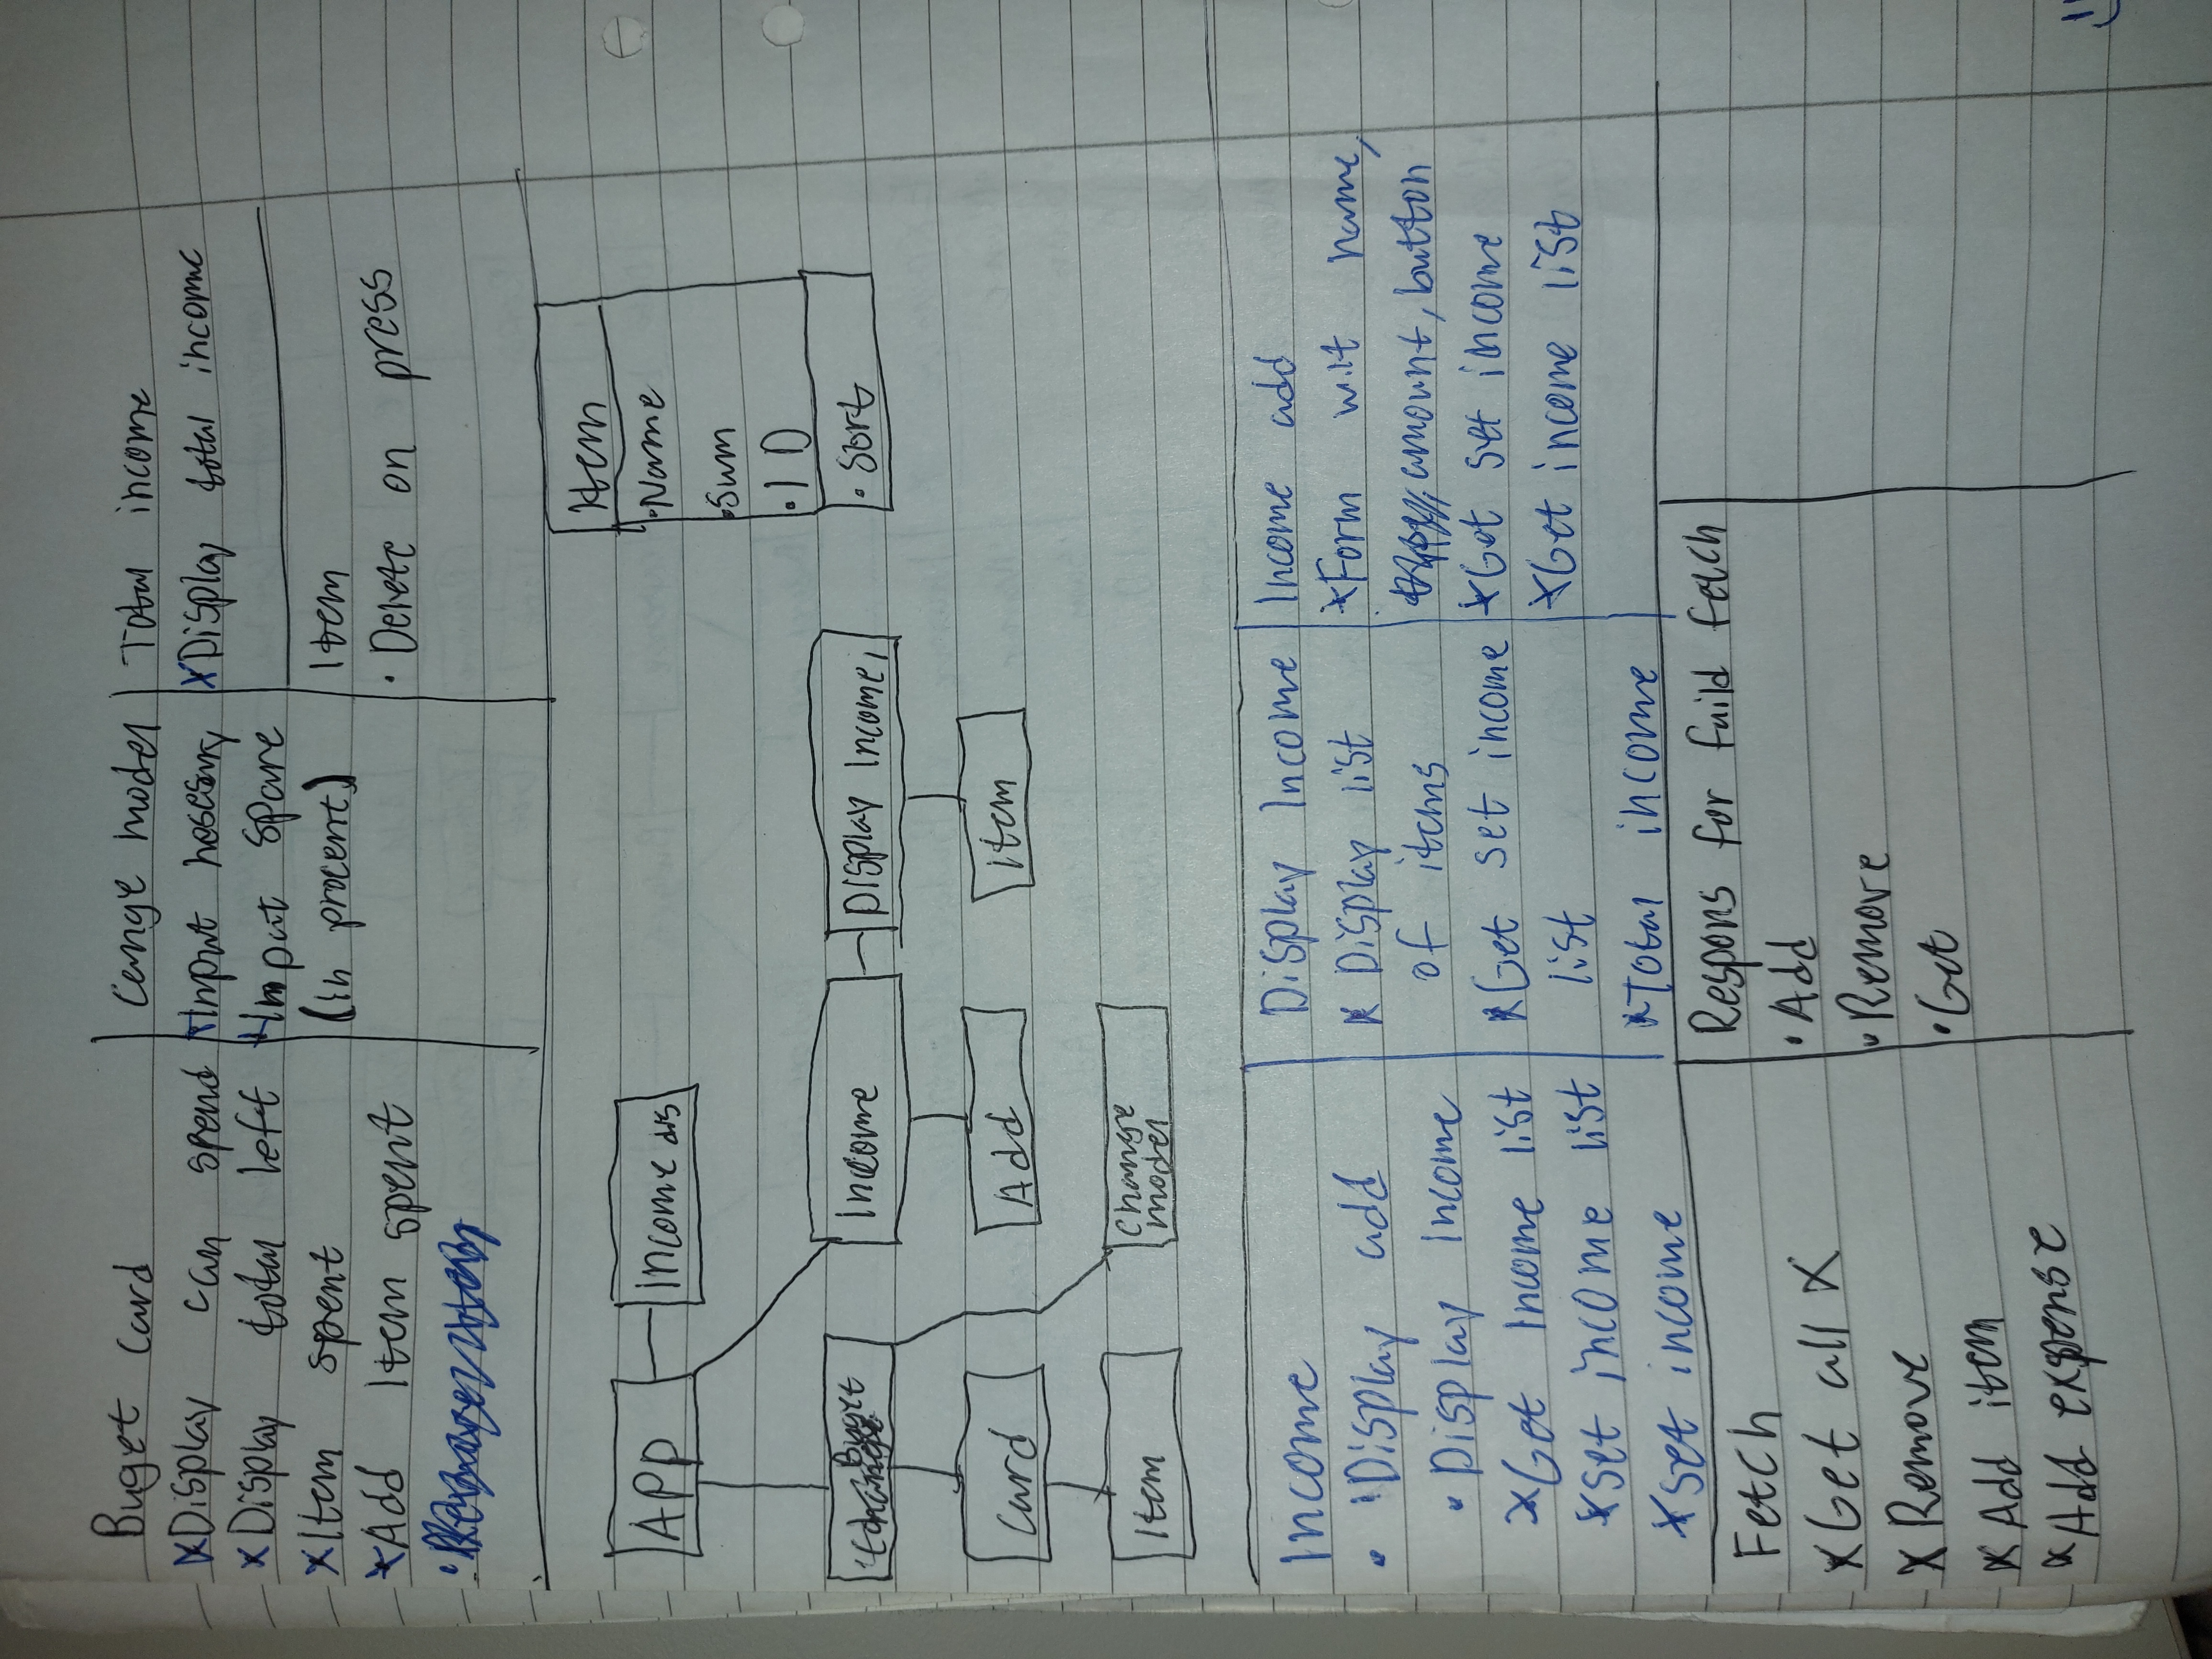 Buget card
xDisplay can spend
xDisplay total left
xItem spent
xAdd Item spent
Cange model
xInput nescesary
xInput spare
(in procent)
Total income
xDisplay total income
Item
· Delete on press
APP
Income dis
Buget
Income
Display Income
Card
Add
Item
Item
Change
model
Item
·Name
·Sum
·ID
·Sort
Income
· Display add
· Display Income
xGet Income list
xset income list
xset income
Display Income
x Display list
of items
xGet set income
list
xTotal income
Income add
xForm wilt name,
amount, button
xGet set income
xGet income list
Fetch
xGet all X
x Remove
x Add item
xAdd expense
Respons for faild fetch
·Add
·Remove
·Get